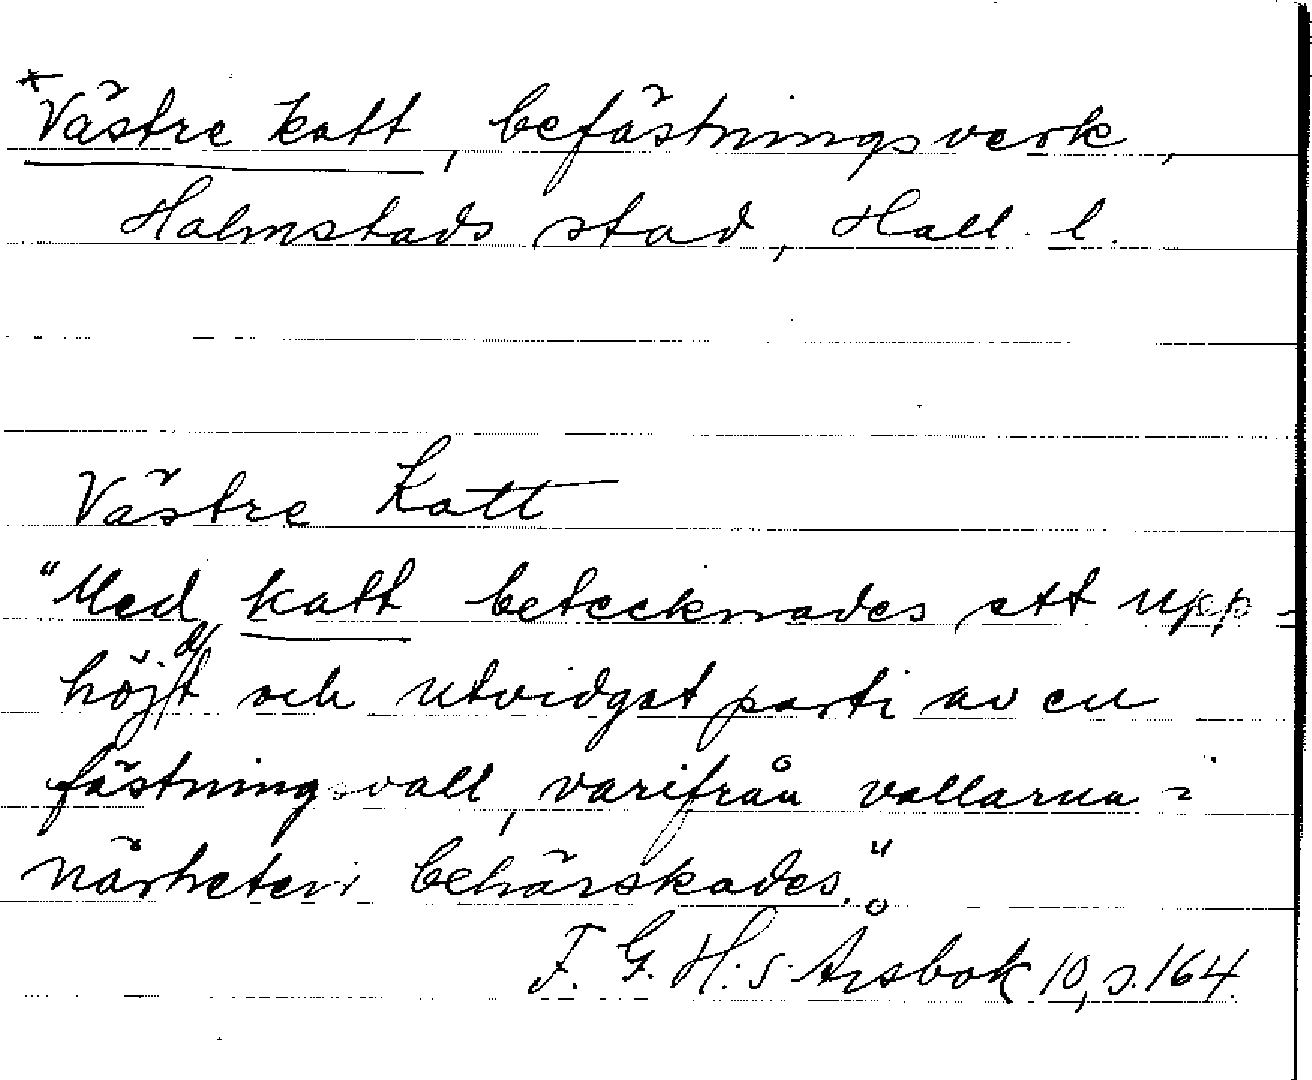 *Västre katt, befästningsverk,
Halmstads stad, Hall. l.
Västre Katt
"Med katt betecknades ett upp-
höjdt och utvidgat parti av en
fästningsvall, varifrån vallarna i
närheten behärskades."
F. G. H:s Årsbok 10, s. 164.